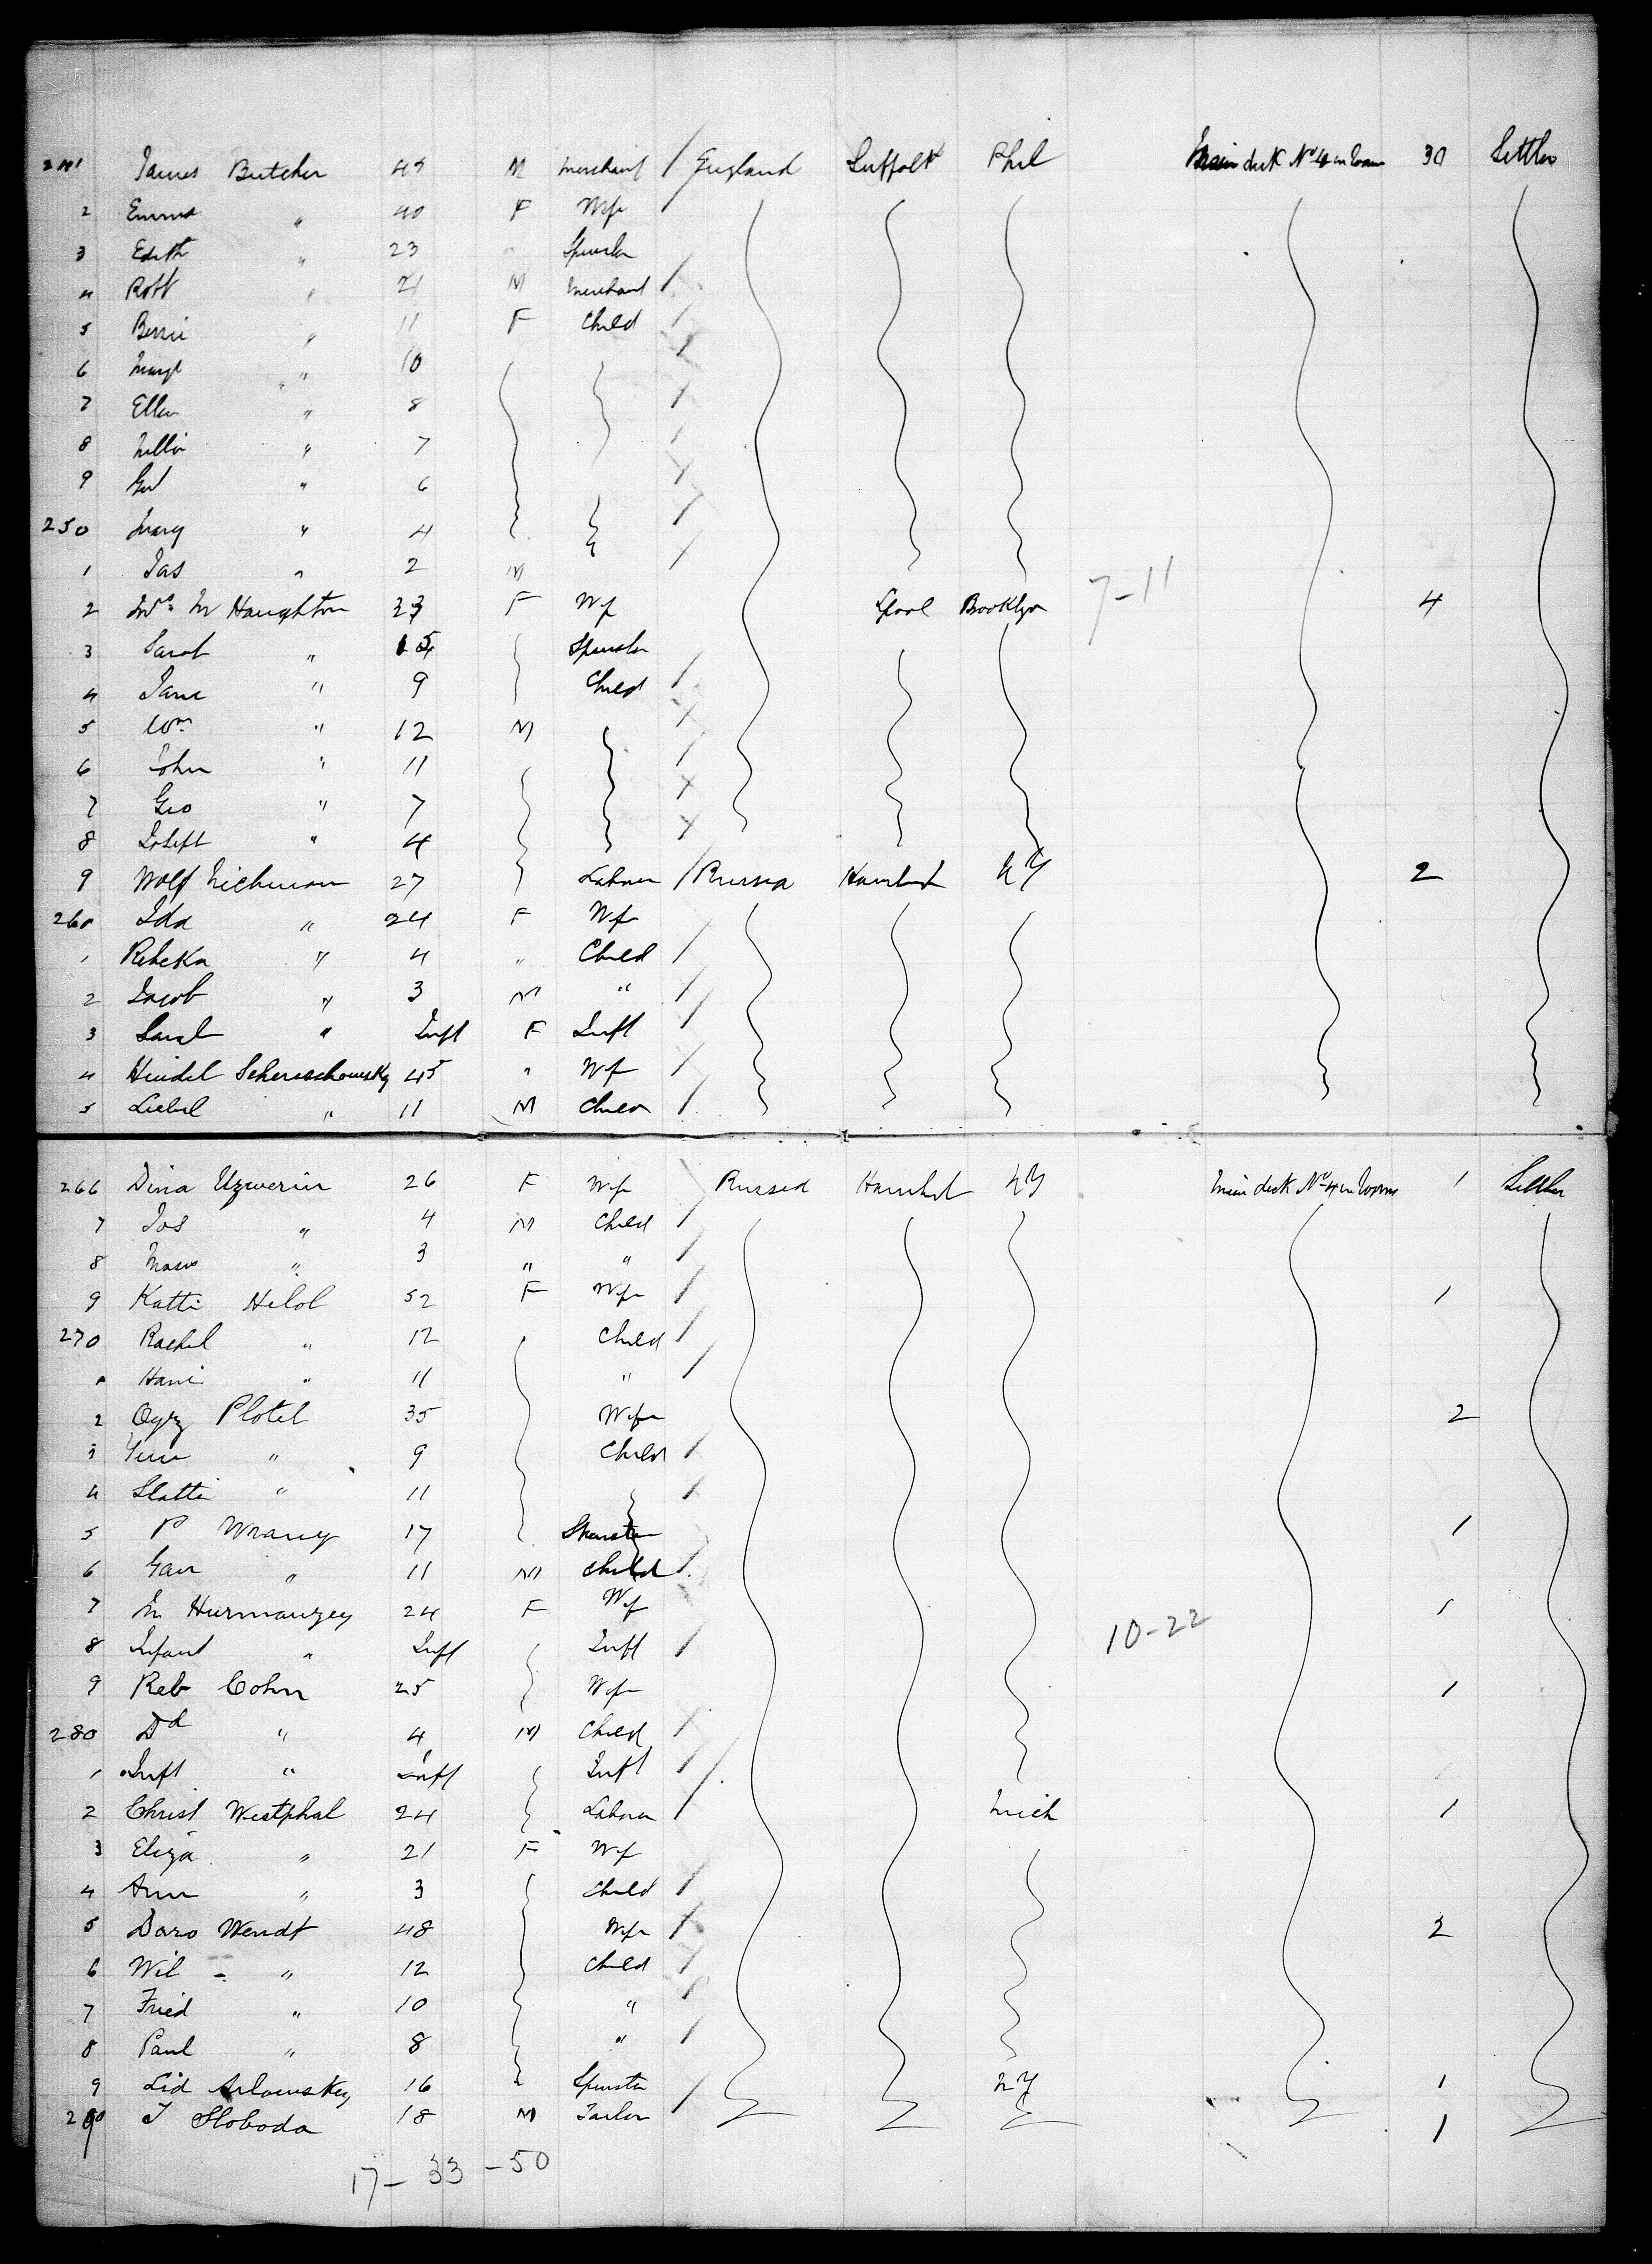 241 James Butcher 45 M Merchant / England Suffolk Phil Main deck No 4 in Room 30 Settler
2 Emma " 40 F Wife
3 Edith " 23 " Spinster
4 Robt " 21 M Merchant /
5 Bessie " 11 F Child /
6 Margt " 10 /
7 Ellen " 8 /
8 Nellie " 7 /
9 " 6 /
250 Mary " 4 /
1 Jas " 2 M /
2 Mrs M Haughton 33 F Wf Lpool Brooklyn 7-11 4
3 Sarah " 15 Spinster
4 Jane " 9 Child /
5 Wm " 12 M /
6 John " 11 /
7 Geo " 7 /
8 Joseph " 4 /
9 Wolf 27 Labourer / Russia Hamburg NY 2
260 Ida " 24 F Wf
1 Rebeka " 4 " Child /
2 Jacob " 3 M " /
3 Sarah " Inft F Inft /
4 Hindel Schereschowsky 45 " Wf /
5 Liebel " 11 M Child /
266 Dina Uzwerin 26 F Wf Russia Hamburg NY Main deck No 4 in Room 1 Settler
7 Jos " 4 M Child /
8 " 3 " " /
9 Katti Hilol 52 F Wife / 1
270 Rachel " 12 Child /
1 Hani " 11 " /
2 Plotel 35 Wife 2
3 " 9 Child /
4 Slatti " 11 /
5 P Wrany 17 Spinster 1
6 " 11 M Child /
7 M Hurmanzey 24 F Wf 10-22 1
8 Infant " Inft Inft /
9 Reb Cohn 25 Wife 1
280 Dd " 4 M Child /
1 Inft " Inft Inft /
2 Christ Westphal 24 Labourer / Mich 1
3 Eliza " 21 F Wf
4 Ann " 3 Child /
5 Doro Wendt 48 Wife / 2
6 Wil " 12 Child /
7 Fried " 10 " /
8 Paul " 8 " /
9 Lid Arlowskey 16 Spinster / NY 1
290 J Sloboda 18 M Tailor 1
17-33-50